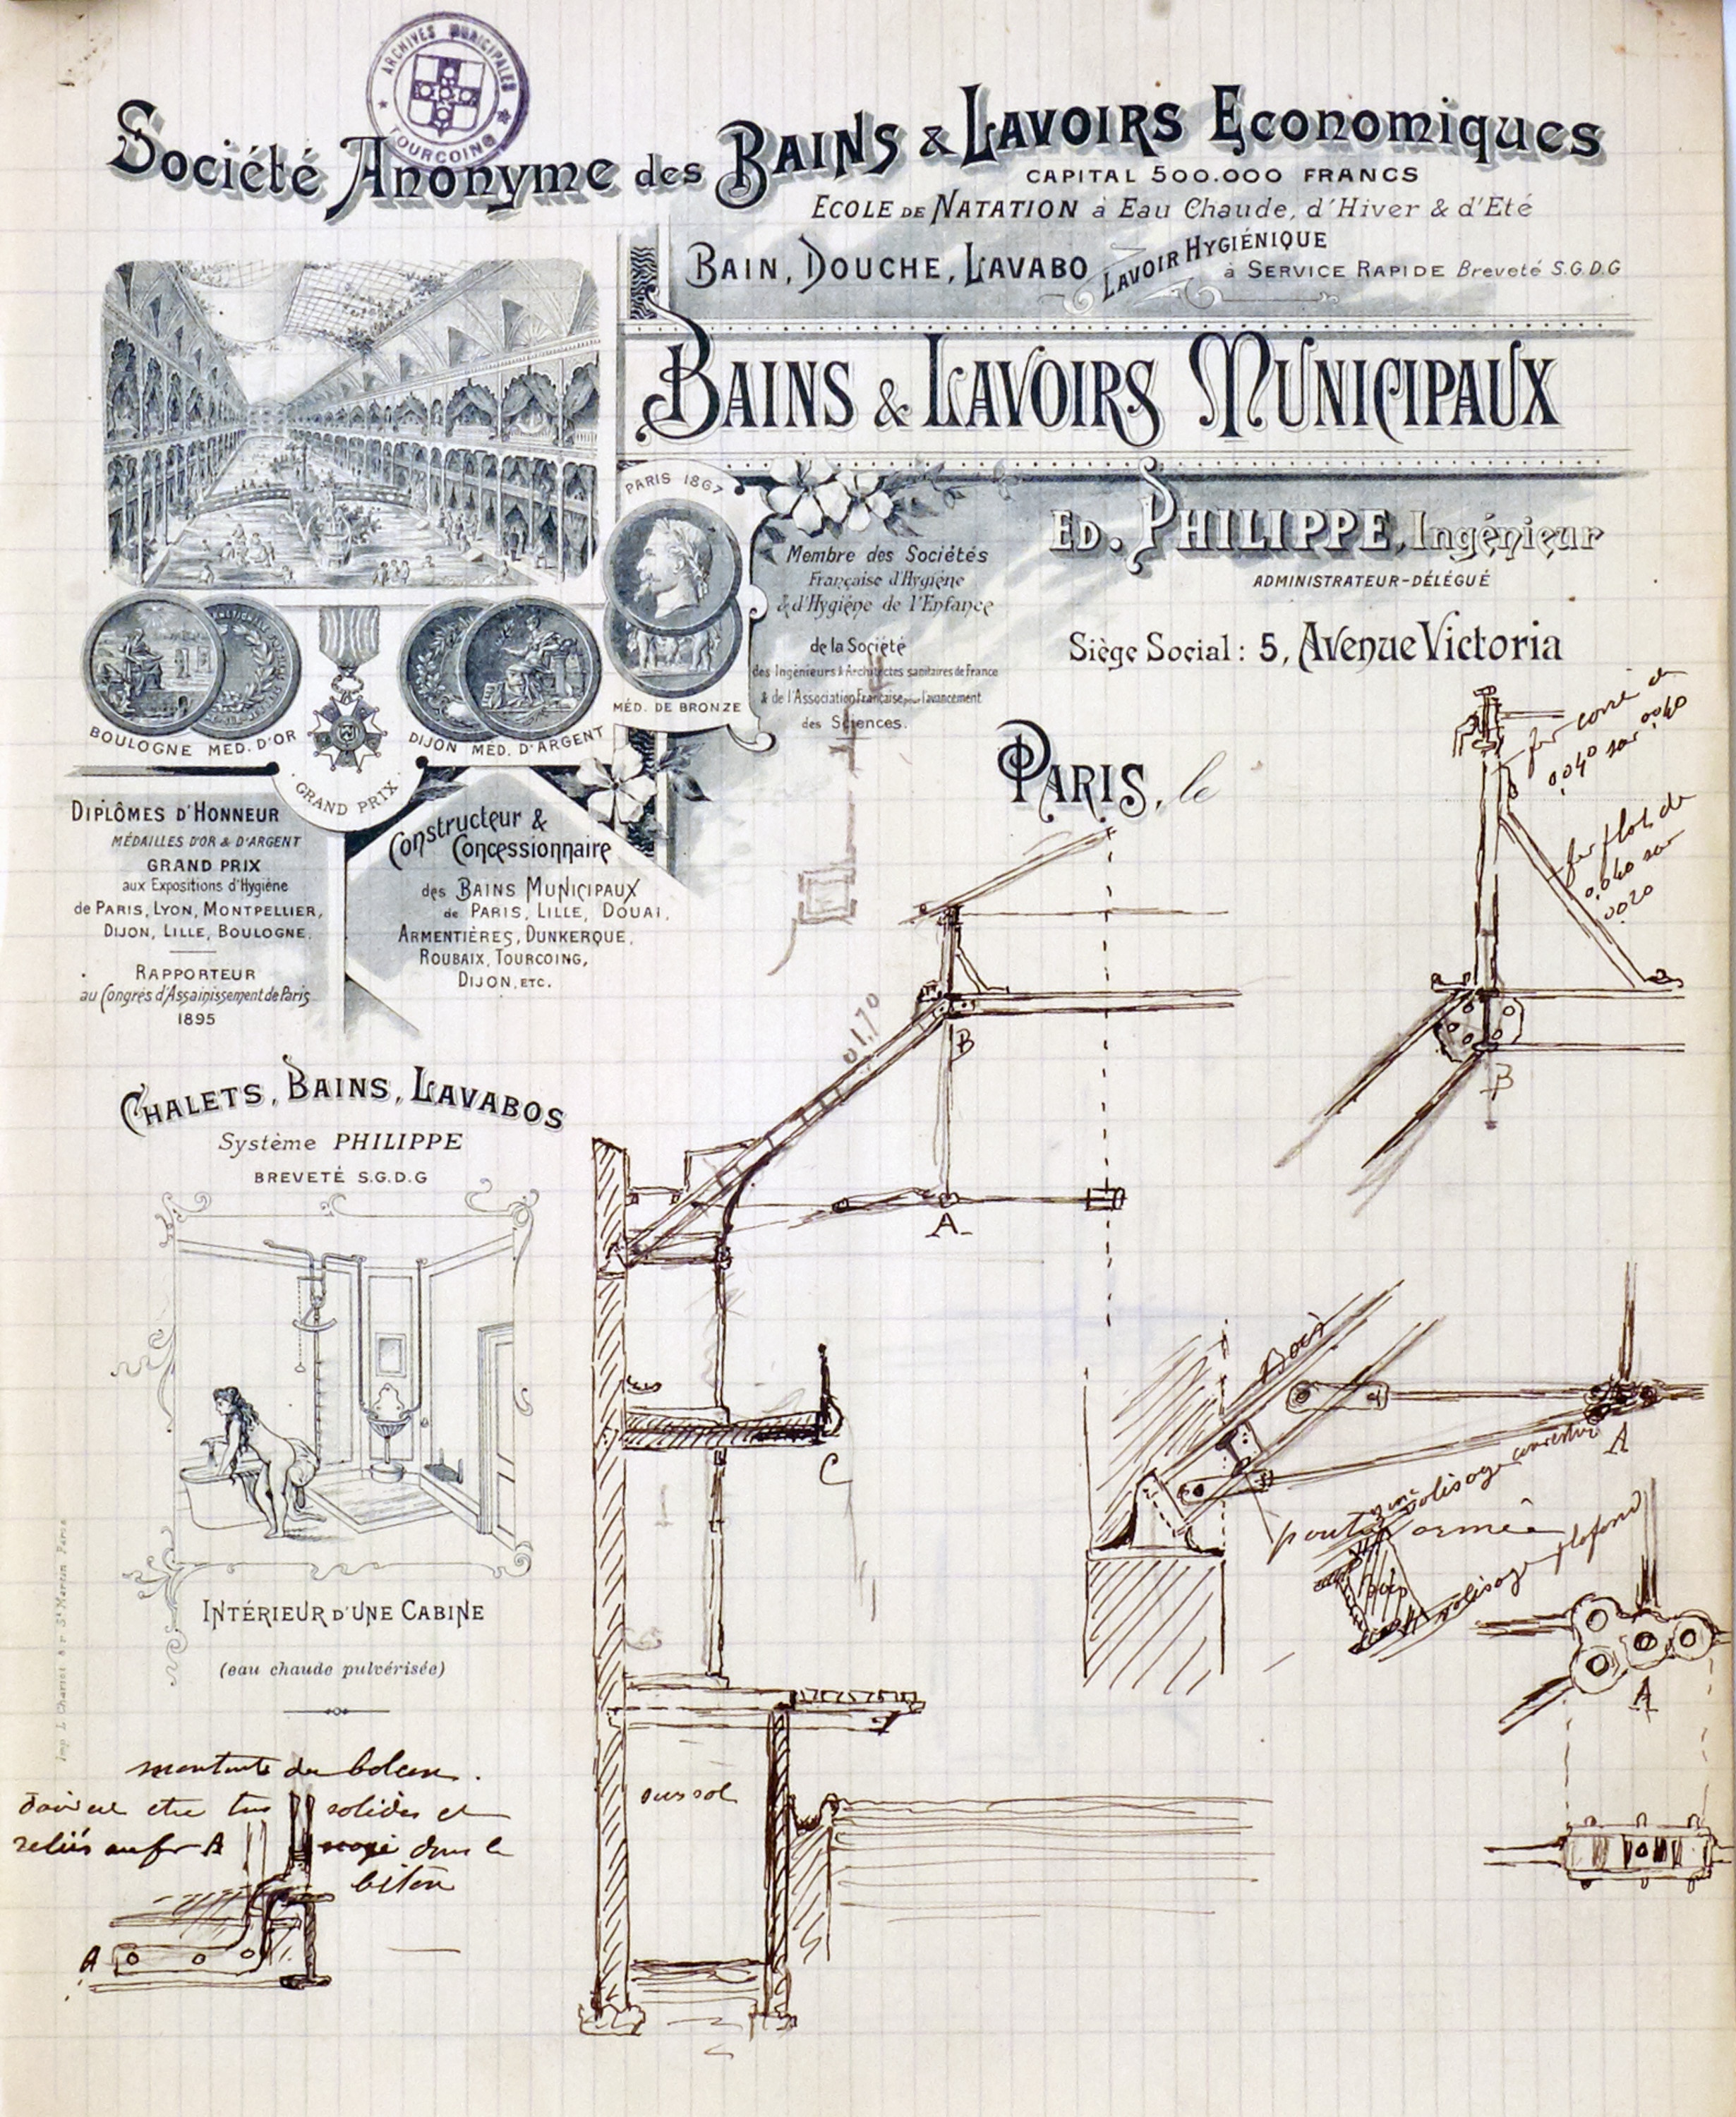 ARCHIVES MUNICIPALES
TOURCOING
Société Anonyme des BAINS & LAVOIRS Economiques
CAPITAL 500.000 FRANCS
ECOLE DE NATATION à Eau Chaude, d'Hiver & d'Eté
BAIN, DOUCHE, LAVABO LAVOIR HYGIÉNIQUE
à SERVICE RAPIDE Breveté S.G.D.G
BAINS & LAVOIRS MUNICIPAUX
PARIS 1867
MÉD. DE BRONZE
Membre des Sociétés
Française d'Hygiène
& d'Hygiène de l'Enfance
de la Société
des Ingénieurs & Architectes sanitaires de France
& de l'Association Française pour l'avancement
des Sciences.
ED. PHILIPPE, Ingénieur
ADMINISTRATEUR-DÉLÉGUÉ
Siège Social : 5, Avenue Victoria
PARIS, le
BOULOGNE MED. D'OR
GRAND PRIX
DIJON MÉD. D'ARGENT
DIPLÔMES D'HONNEUR
MÉDAILLES D'OR & D'ARGENT
GRAND PRIX
aux Expositions d'Hygiène
de PARIS, LYON, MONTPELLIER,
DIJON, LILLE, BOULOGNE.
RAPPORTEUR
au Congrès d'Assainissement de Paris
1895
Constructeur &
Concessionnaire
des BAINS MUNICIPAUX
de PARIS, LILLE, DOUAI,
ARMENTIÈRES, DUNKERQUE,
ROUBAIX, TOURCOING,
DIJON, ETC.
CHALETS, BAINS, LAVABOS
Système PHILIPPE
BREVETÉ S.G.D.G
INTÉRIEUR D'UNE CABINE
(eau chaude pulvérisée)
Imp. L. Chariot 8 r. St Martin Paris
fer corné de
0,040 sur 0040
fer plat de
0,040 sur
0020
B
B
0170
A
C
Bois
A
poutre armée
voligeage
bois
voligeage plafond
A
sussol
montants du balcon.
doivent etre tres solides et
reliés au fer A dans le
béton
A